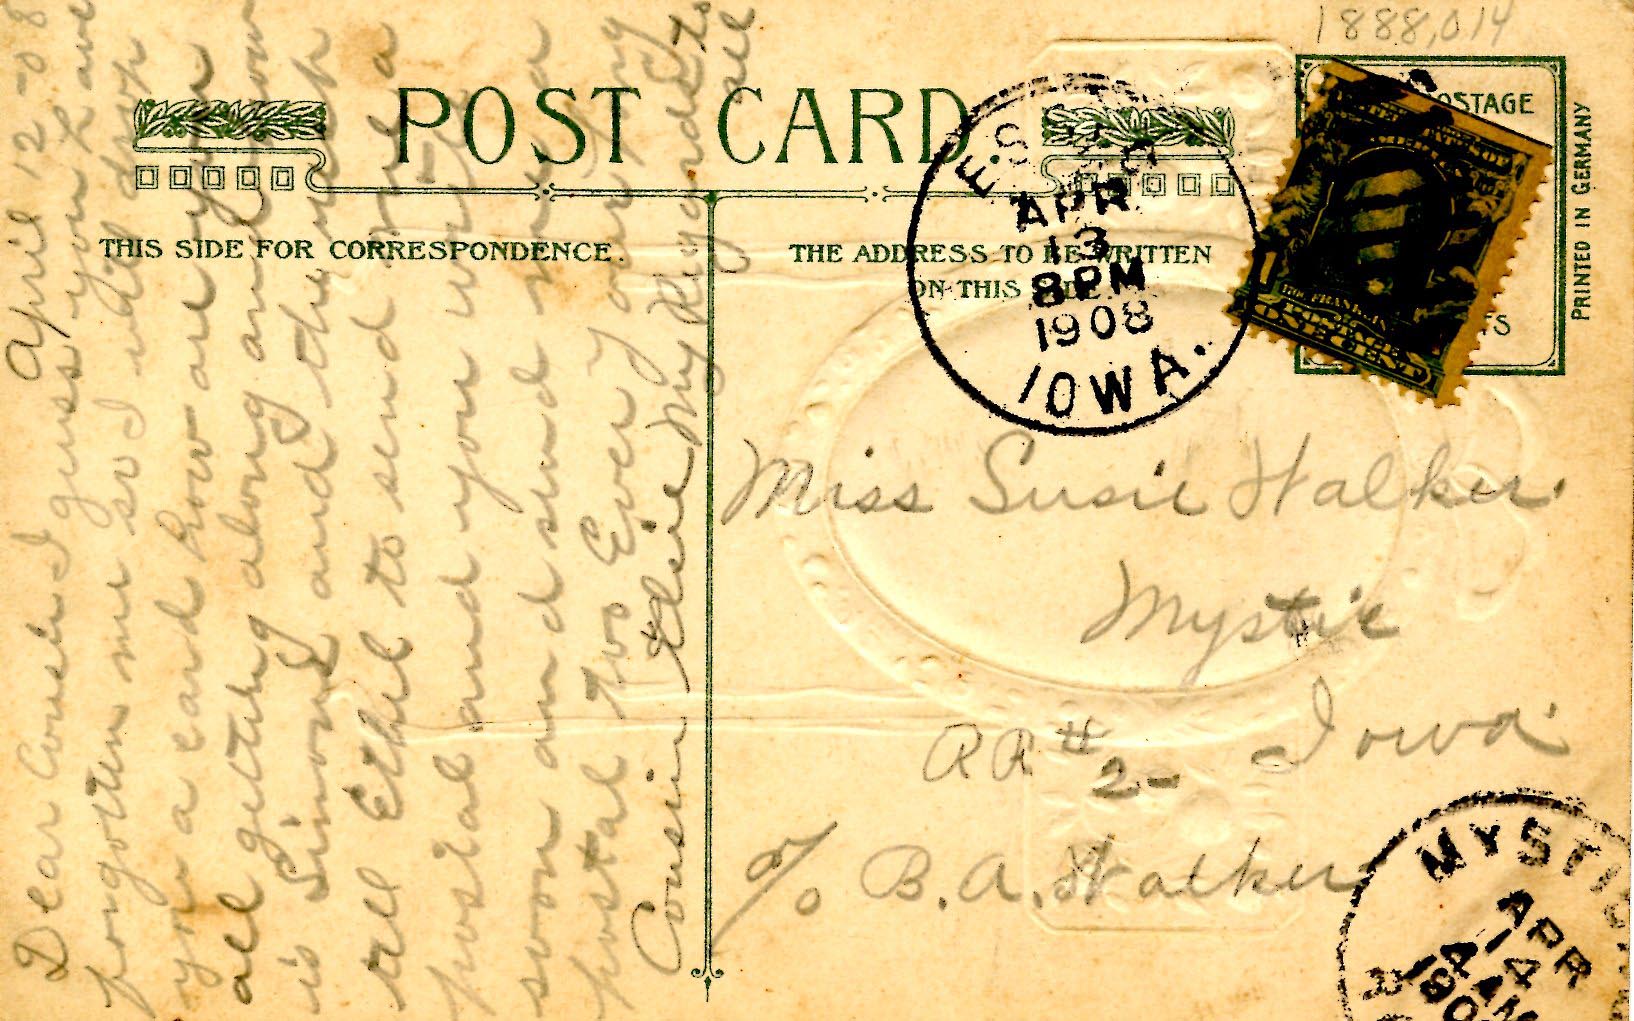 1888,014
POST CARD.
THIS SIDE FOR CORRESPONDENCE.
THE ADDRESS TO BE WRITTEN
ON THIS SIDE.
POSTAGE
PRINTED IN GERMANY
ESSEX
APR
13
8 PM
1908
IOWA.
ONE CENT
April 12-08
Dear Cousin I guess you have
forgotten me so I will drop
you a card how are you
all getting along and how
is Simond and the
tell Ethel to send me a
postal and you write
soon and send me a
postal too Ever your
Cousin Elsie
My Regards to
all
Miss Susie Walker.
Mystic
RR # 2- Iowa.
c/o B.A. Walker
MYSTIC
APR
14
4 AM
190